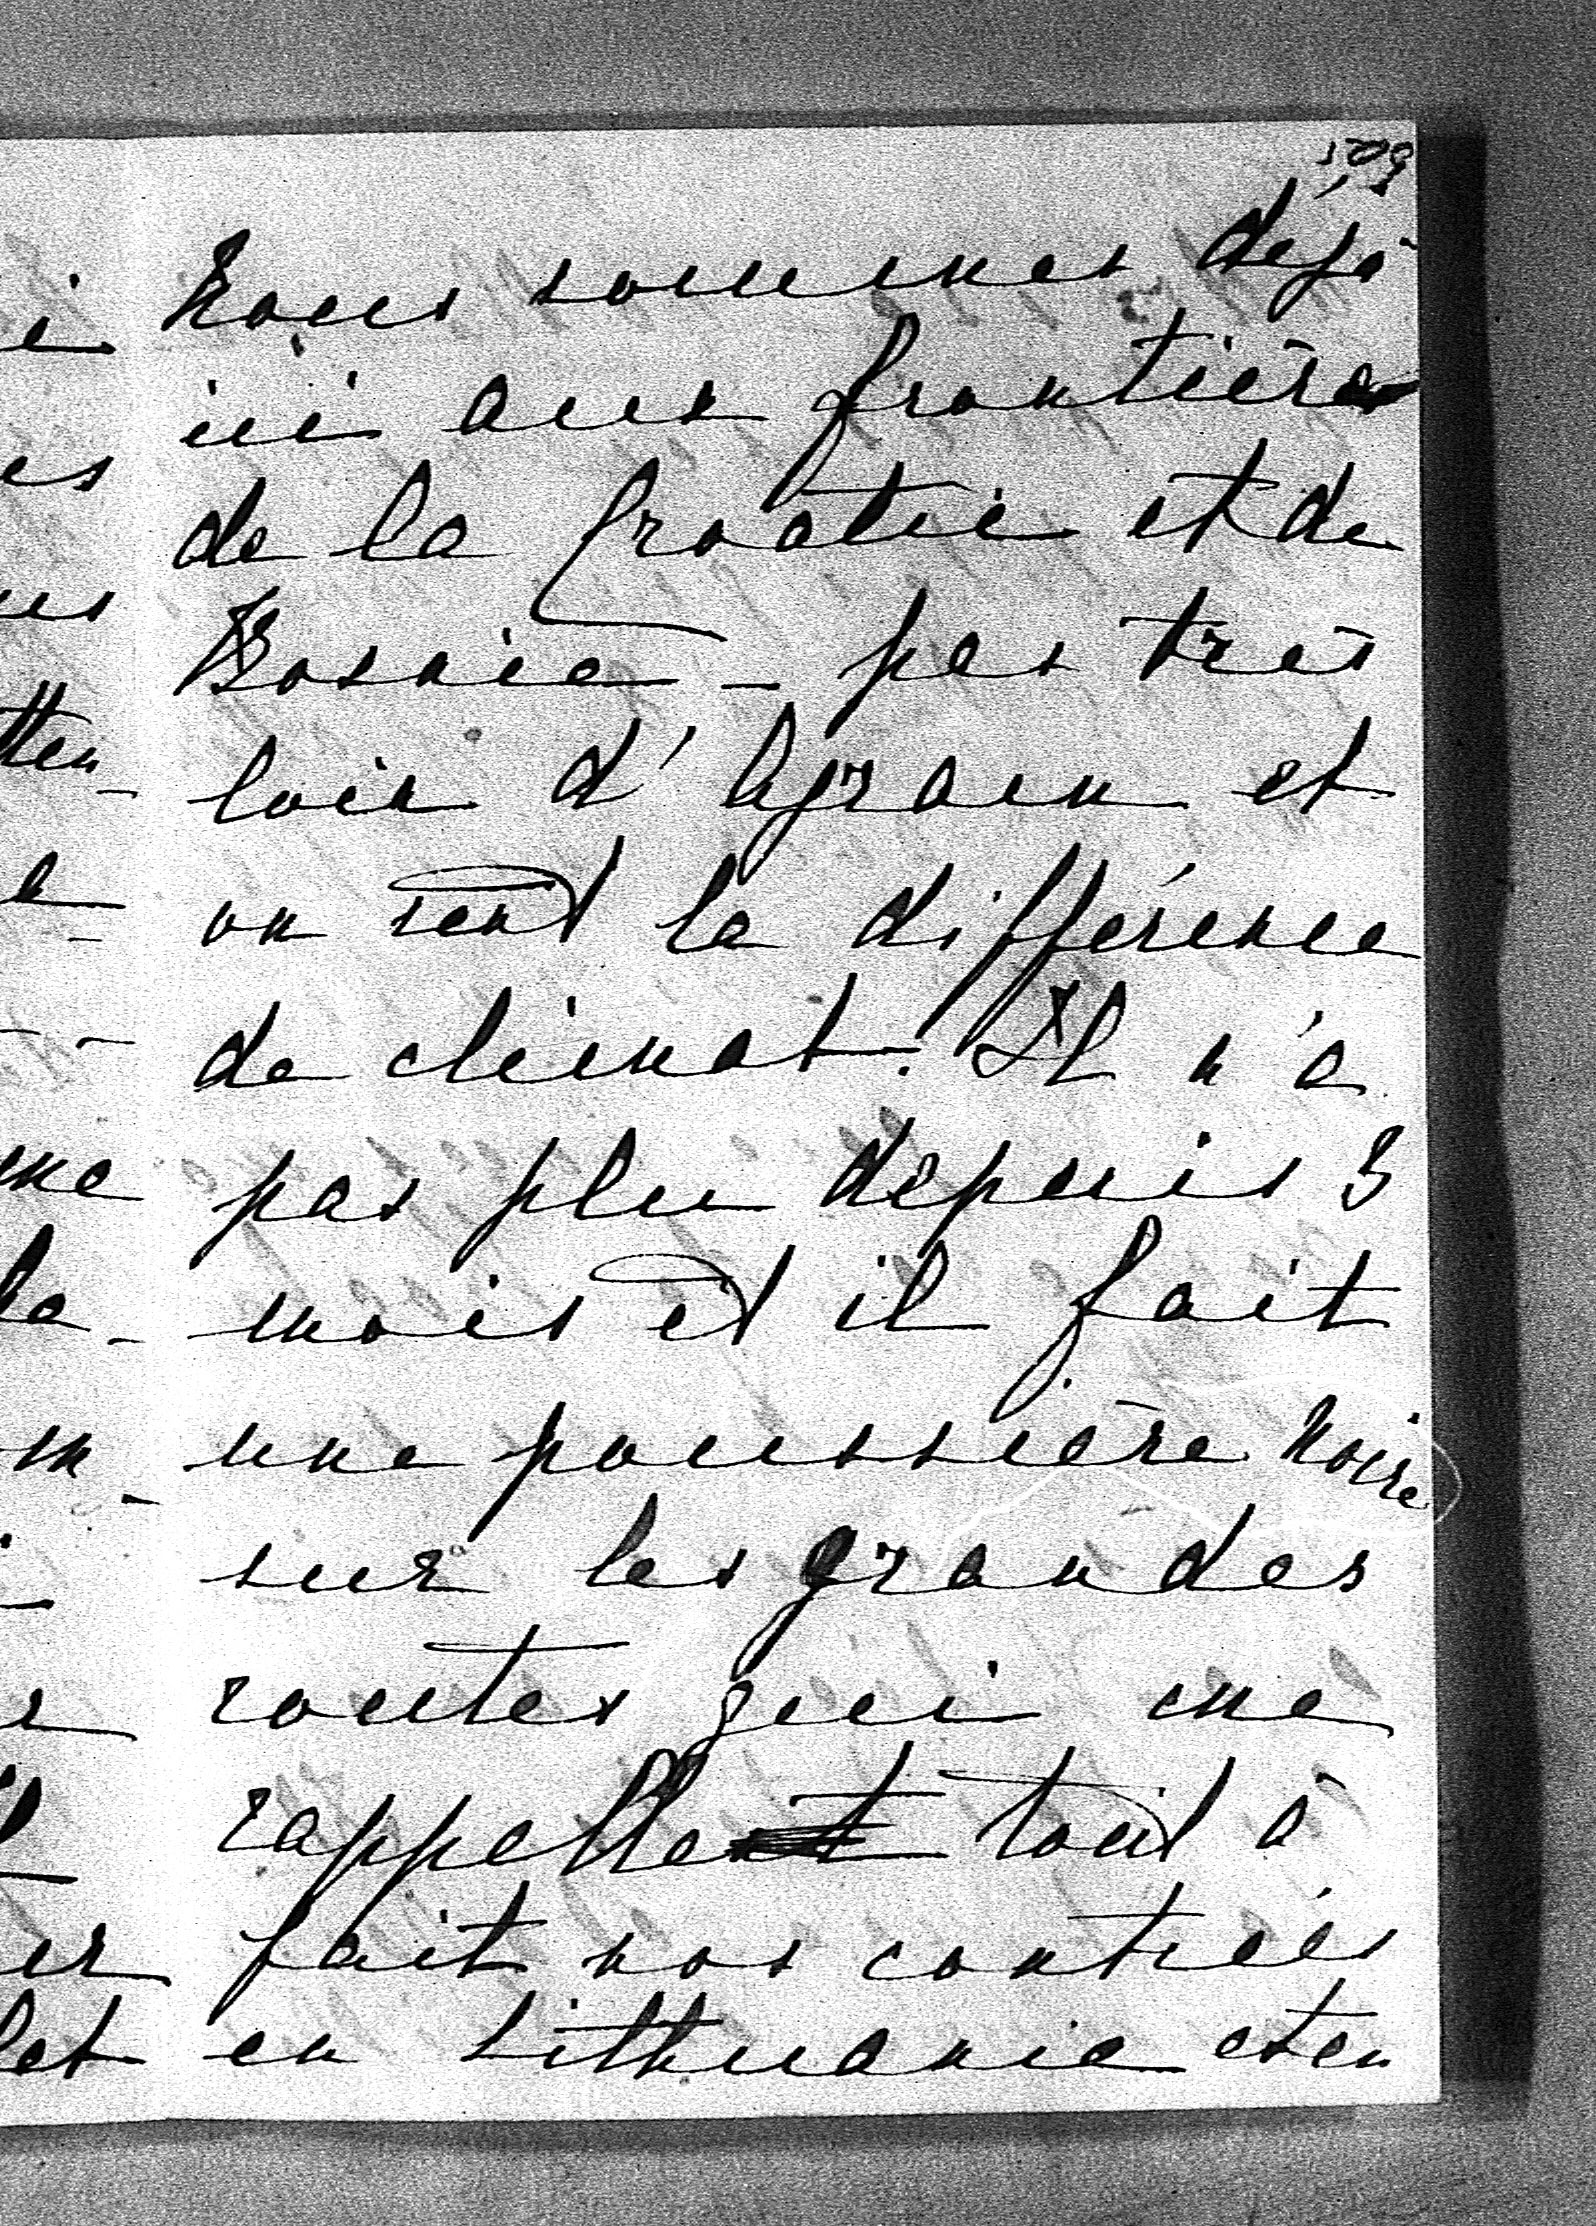 509
Nous sommes déjà
ici aux frontières
de la Croatie et de
Bosnie - pas très
loin d'Agram et
on sent la différence
de climat. Il n'a
pas plu depuis 3
mois et il fait
une poussière noire
sur les grandes
routes qui me
rappelle tout à
fait nos contrées
en Lithuanie et en